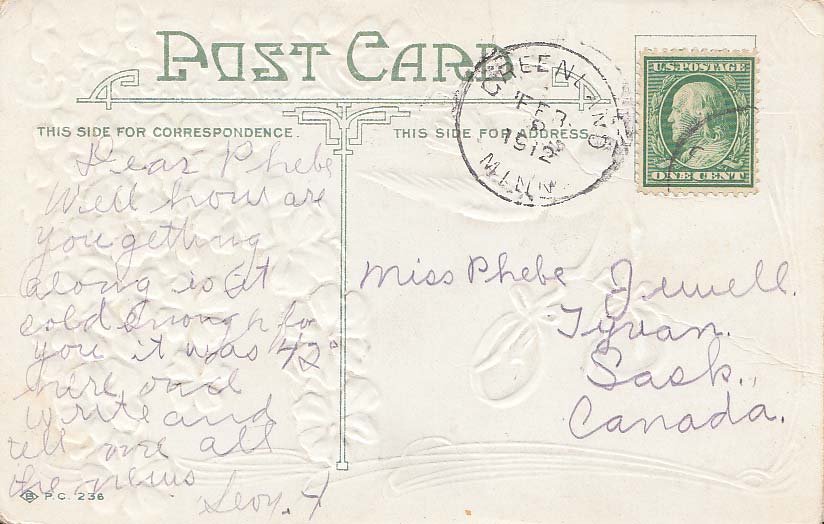 POST CARD
THIS SIDE FOR CORRESPONDENCE.
THIS SIDE FOR ADDRESS
GREENLAND
FEB
1912
MINN
U.S. POSTAGE
ONE CENT
Dear Phebe
Well how are
you getting
along is it
cold Enough for
you it was 42°
here and
write and
tell me all
the news
Miss Phebe Jewell.
Tyvan.
Sask.,
Canada.
P.C. 236